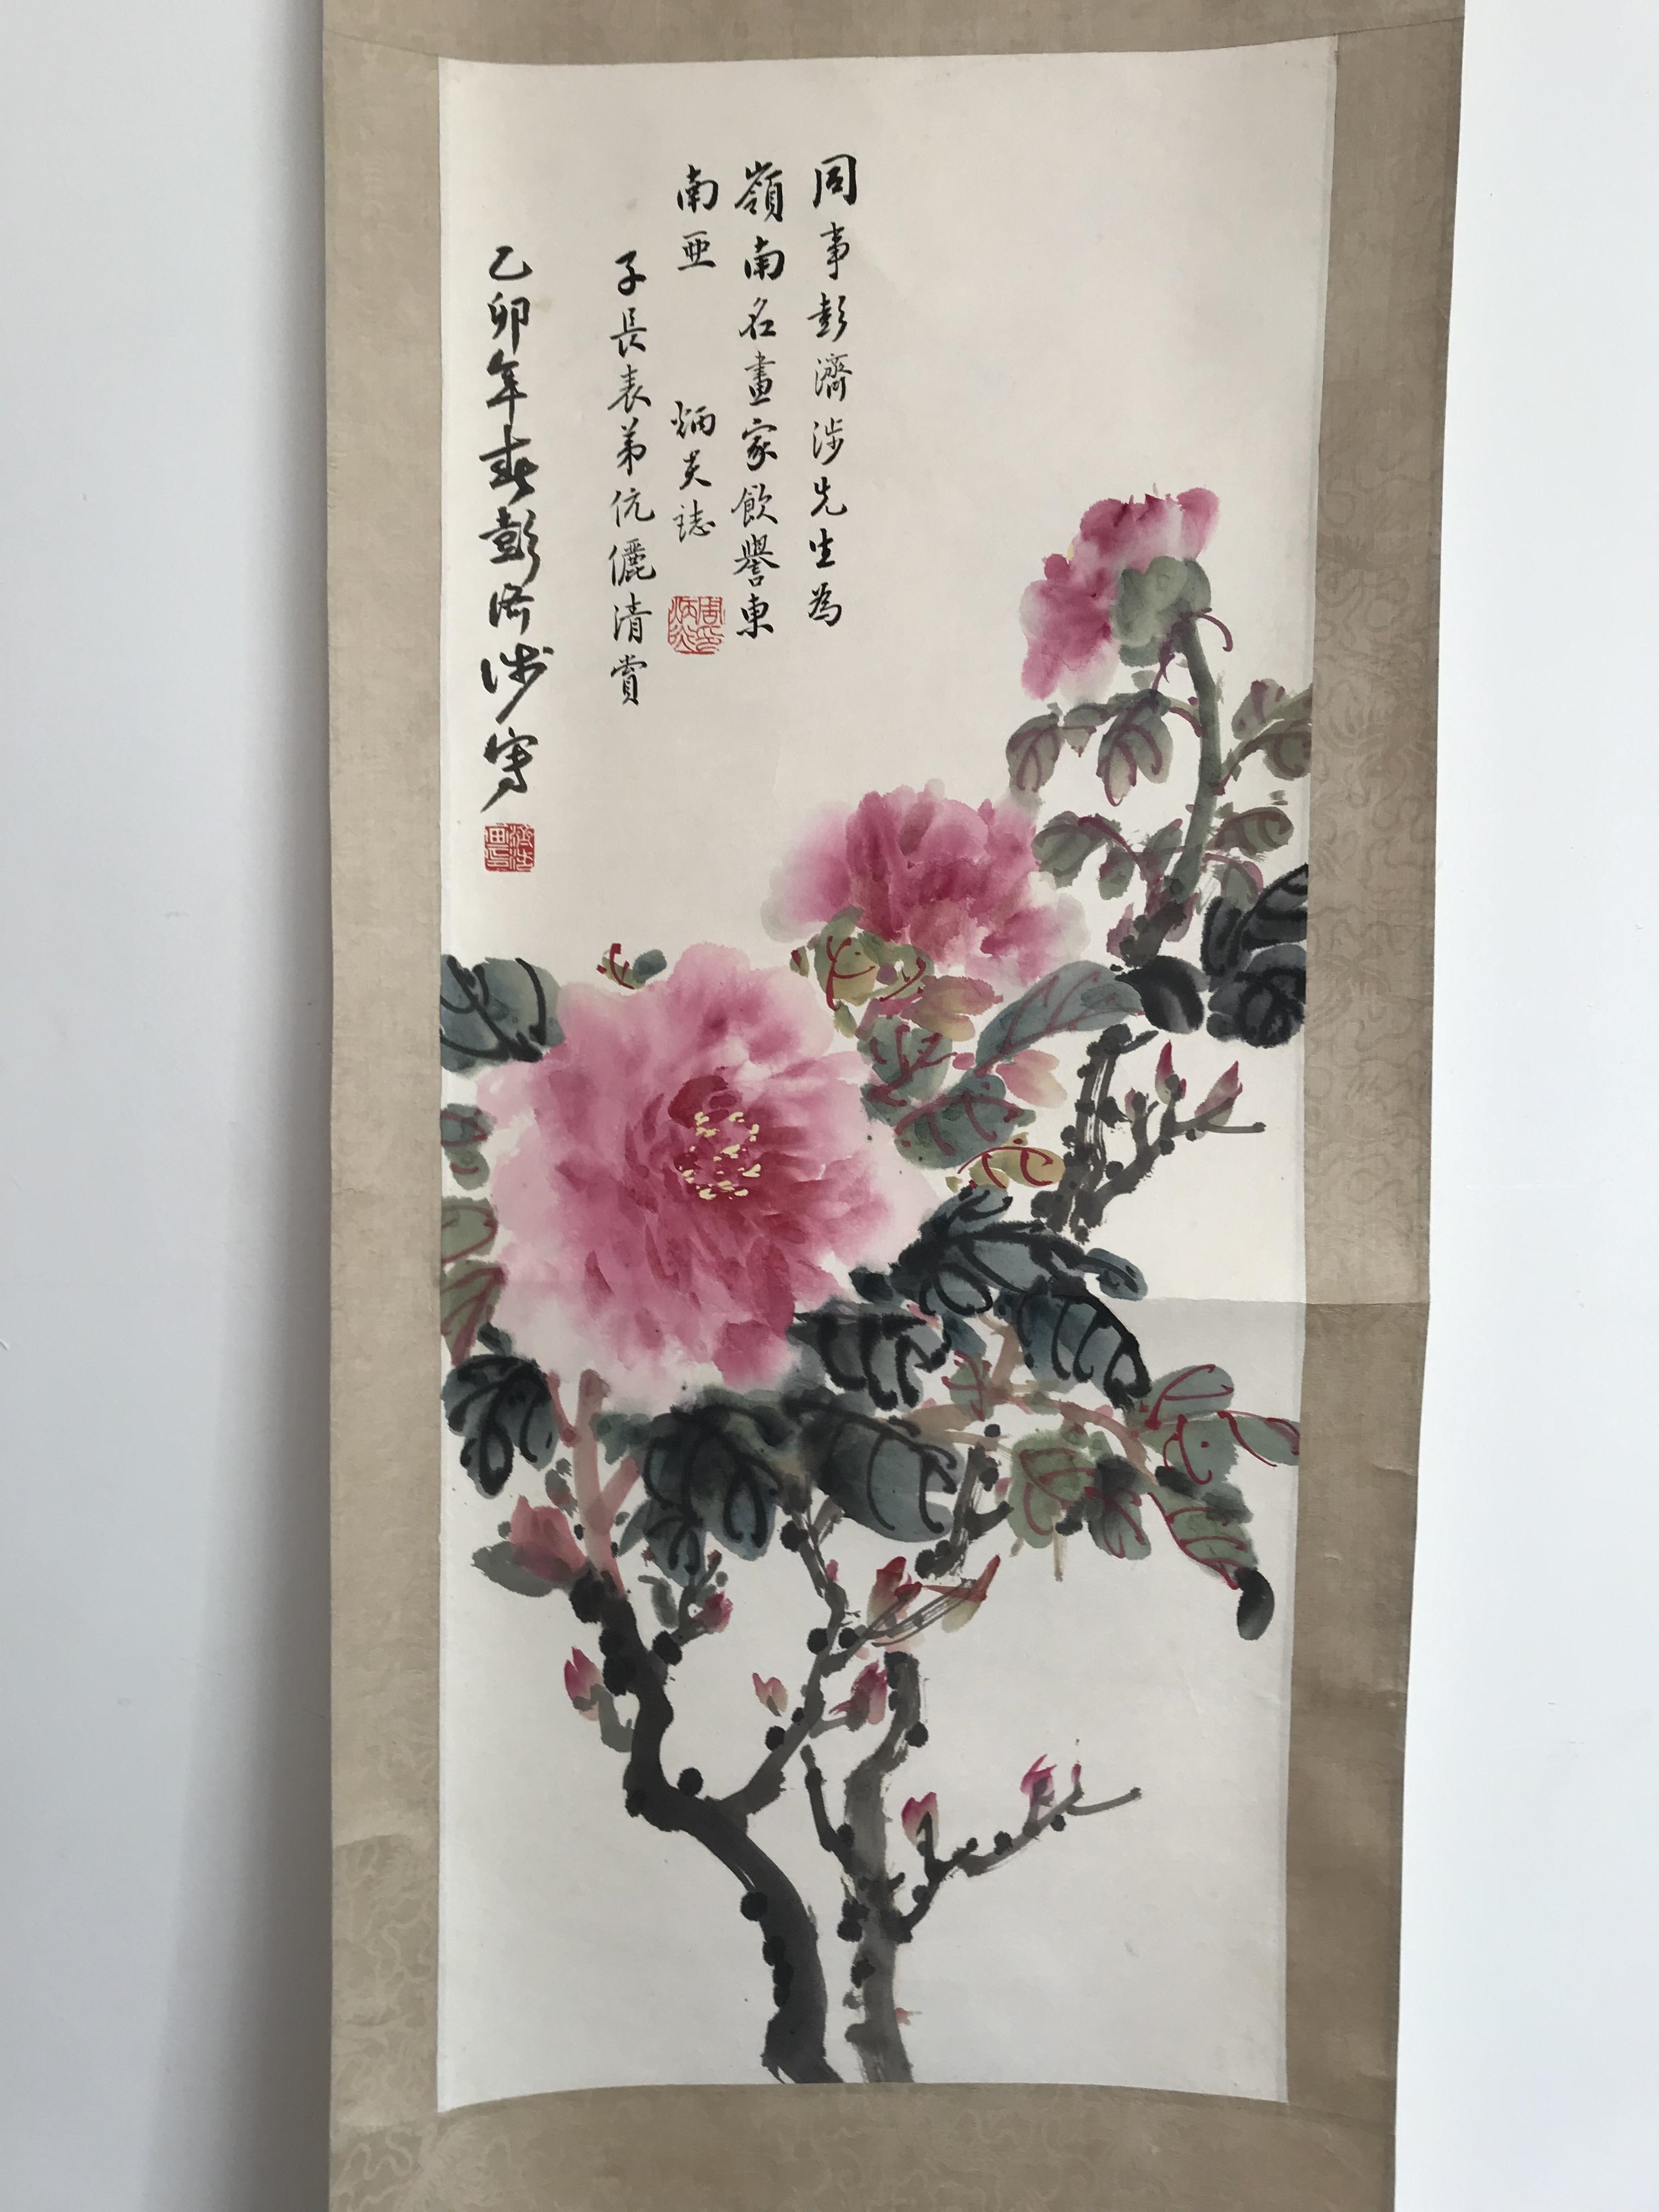 同事彭濟涉先生為
嶺南名畫家飲譽東
南亜 炳炎誌
周炳炎印
子長表弟伉儷清賞
乙卯年春彭濟涉寫